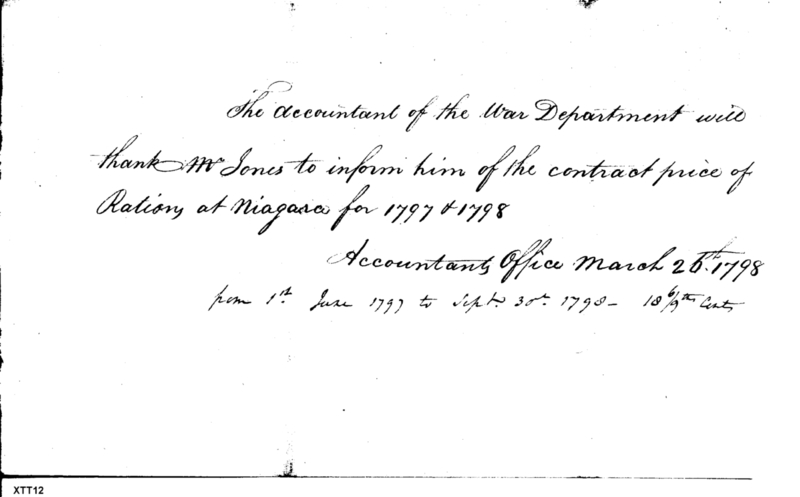 The Accountant of the War Department will
thank Mr Jones to inform him of the contract price of
Rations at Niagara for 1797 & 1798
Accountants Office March 26th. 1798
from 1st. June 1797 to Sept. 30th. 1798 – 18 6/9ths Cents
XTT12